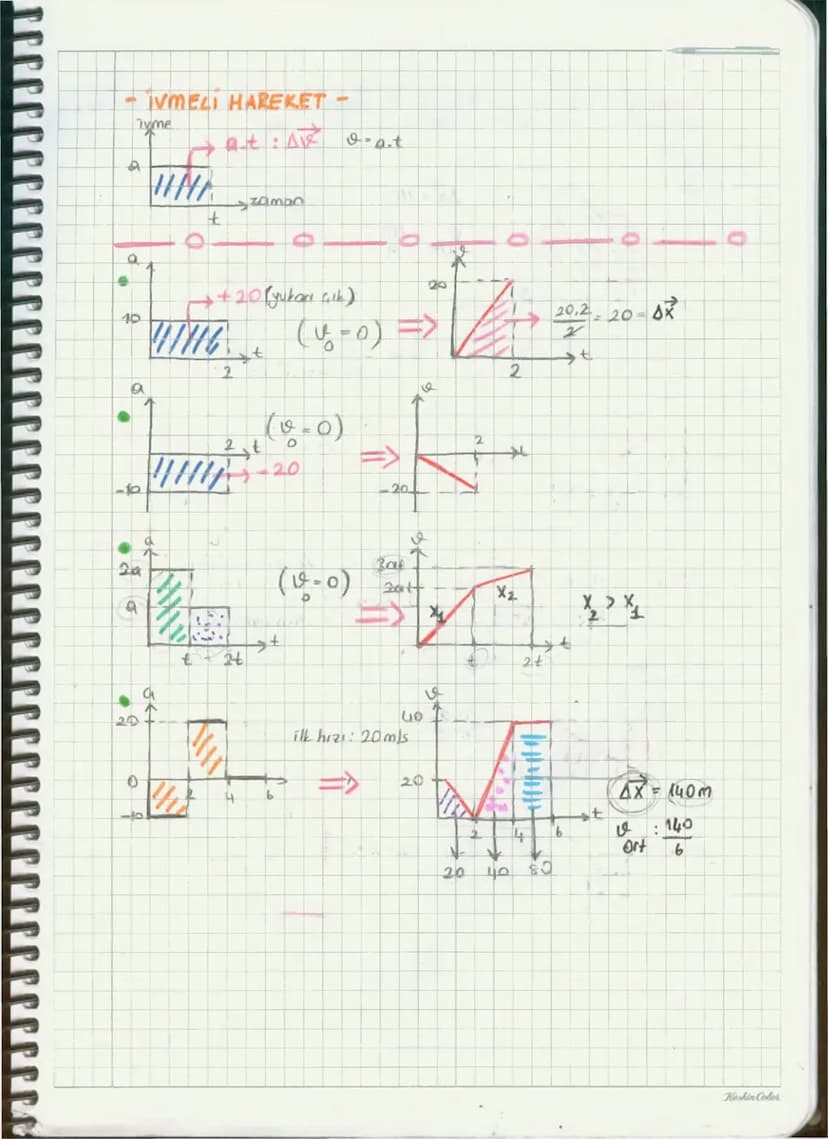 - İVMELİ HAREKET -
ivme
a.t : Δϑ ϑ=a.t
a
zaman
t
a
+20 (yukarı çık)
10
(ϑ₀=0)
t
2
ϑ
20
20.2/2 = 20 = Δx
t
2
a
(ϑ₀=0)
2 t
-20
-10
ϑ
2
t
-20
a
2a
a
(ϑ₀=0)
t
t 2t
ϑ
3at
2at
x₁ x₂
x₂ > x₁
t
t 2t
a
20
0
2 4 6
-10
ilk hızı: 20m/s
ϑ
40
20
t
2 4 6
20 40 80
Δx = 140m
ϑort : 140/6
Keskin Color